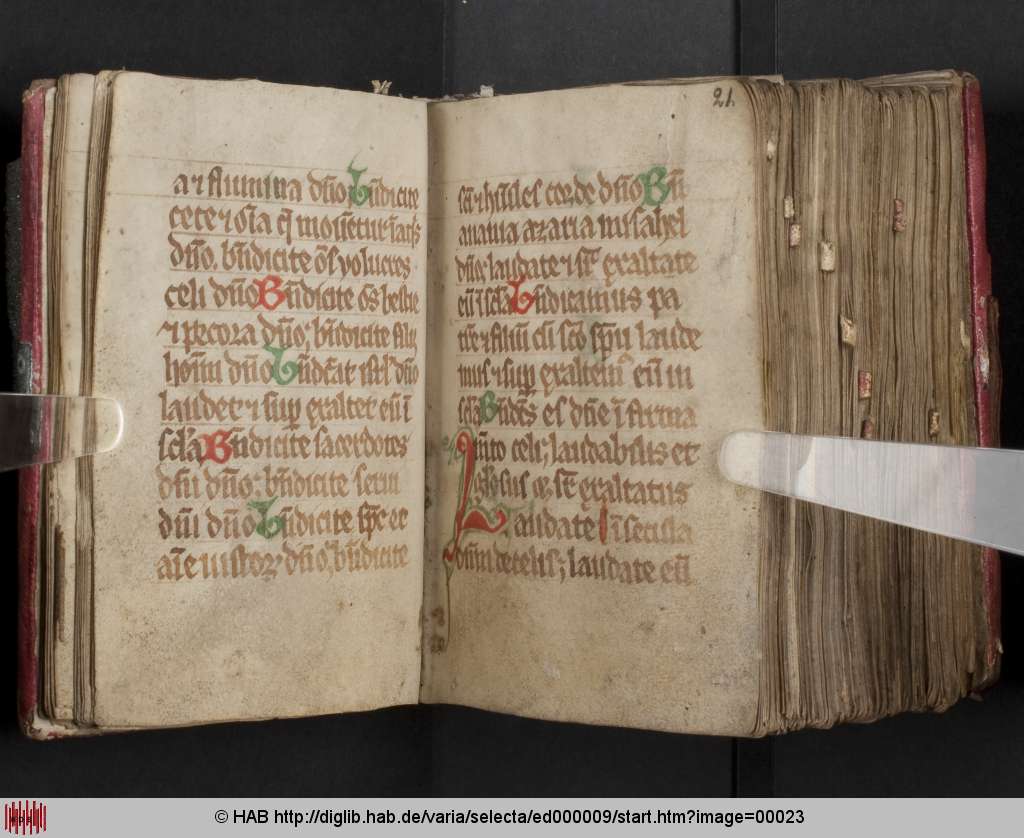 a et flumina dn̄o Bn̄dicite
cete et oīa q̄ mouētur ī aq̄s
dn̄o. bn̄dicite oēs volucres
celi dn̄o Bn̄dicite oēs bestie
et pecora dn̄o; bn̄dicite filij
hoīm dn̄o Bn̄dicat isrl' dn̄o
laudet et sup exaltet eū ī
scl'a Bn̄dicite sacerdotes
dn̄i dn̄o; bn̄dicite serui
dn̄i dn̄o Bn̄dicite sp̄c et
aīe iustoꝝ dn̄o, bn̄dicite
sc̄i et hūiles corde dn̄o Bn̄
anania azaria misahel
dn̄o; laudate et exaltate
eū ī scl'a Bn̄dicamus pa
trē et filiū cū sc̄o sp̄u laude
mus et sup exaltem' eū in
scl'a Bn̄dc̄s es dn̄e ī firma
mēto celi; laudabilis et
gl'osus et exaltatus
Laudate ī secula
dn̄m de celis; laudate eū
21.
© HAB http://diglib.hab.de/varia/selecta/ed000009/start.htm?image=00023